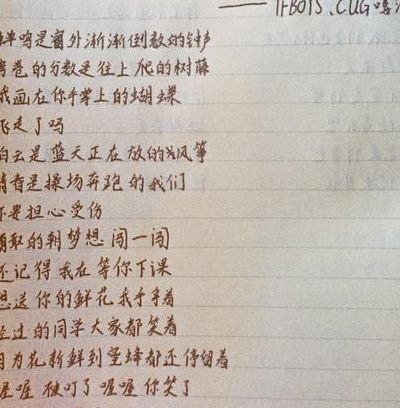 —— TFBOYS、CUG嘻
蝉鸣是窗外渐渐倒数的钟声
考卷的分数是往上爬的树藤
我画在你手掌上的蝴蝶
飞走了吗
白云是蓝天正在放的风筝
青春是操场奔跑的我们
不要担心受伤
勇敢的朝梦想闯一闯
还记得我在等你下课
想送你的鲜花我手着
经过的同学大家都笑着
因为花新鲜到蜜蜂都还停留着
喔喔 被叮了 喔喔 你笑了